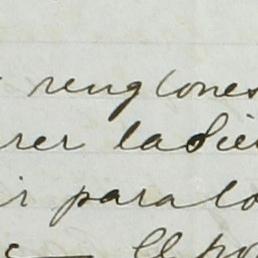 renglones
rer ladie
ir para lo
El po